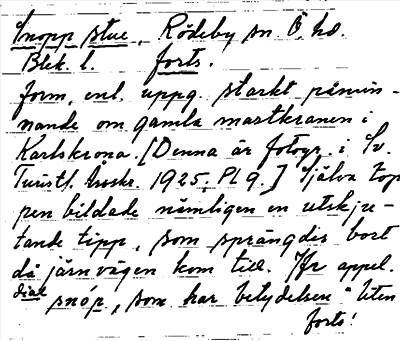 Snopp stue, Rödeby sn Ö. hd.
Blek. l. forts.
form, enl. uppg. starkt påmin-
nande om gamla mastkranen i
Karlskrona. [Denna är fotogr. i Sv.
Turistf. Årsskr. 1925, Pl 9.] Själva top
pen bildade nämligen en utskju-
tande tipp, som sprängdes bort
då järnvägen kom till. Jfr appel.
dial snóp, som har betydelsen "liten
forts!